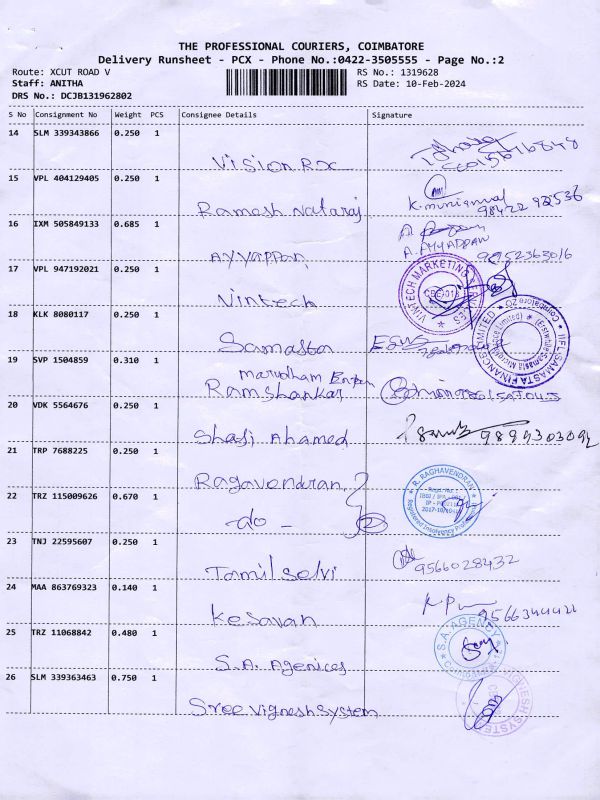 THE PROFESSIONAL COURIERS, COIMBATORE
Delivery Runsheet - PCX - Phone No.:0422-3505555 - Page No.:2
Route: XCUT ROAD V RS No.: 1319628
Staff: ANITHA RS Date: 10-Feb-2024
DRS No.: DCJB131962802
S No Consignment No Weight PCS Consignee Details Signature
14 SLM 339343866 0.250 1
Vision Rx
15 VPL 404129405 0.250 1
Ramesh Nataraj
98422 92536
16 IXM 505849133 0.685 1
A. AYYAPPAN
Ayyappan 9895236 3016
17 VPL 947192021 0.250 1
VINTECH MARKETING
Nintech
18 KLK 8080117 0.250 1
IIFL SAMASTA FINANCE LIMITED
Coimbatore
Samasta
19 SVP 1504859 0.310 1
marudham
Ramshankar
20 VDK 5564676 0.250 1
Shafi Ahamed
21 TRP 7688225 0.250 1
R. RAGHAVENDRAN
Registered Insolvency
Ragavendran
22 TRZ 115009626 0.670 1
-do-
23 TNJ 22595607 0.250 1
Tamil Selvi 9566028432
24 MAA 863769323 0.140 1
Kesavan
25 TRZ 11068842 0.480 1
S.A. AGENCY
S.A. Agenices
26 SLM 339363463 0.750 1
Sree Vignesh System